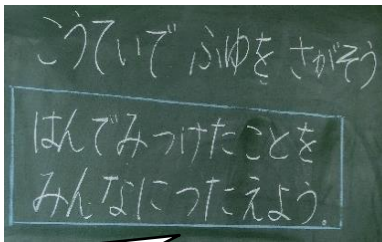 こうていで ふゆを さがそう
はんでみつけたことを
みんなにつたえよう。